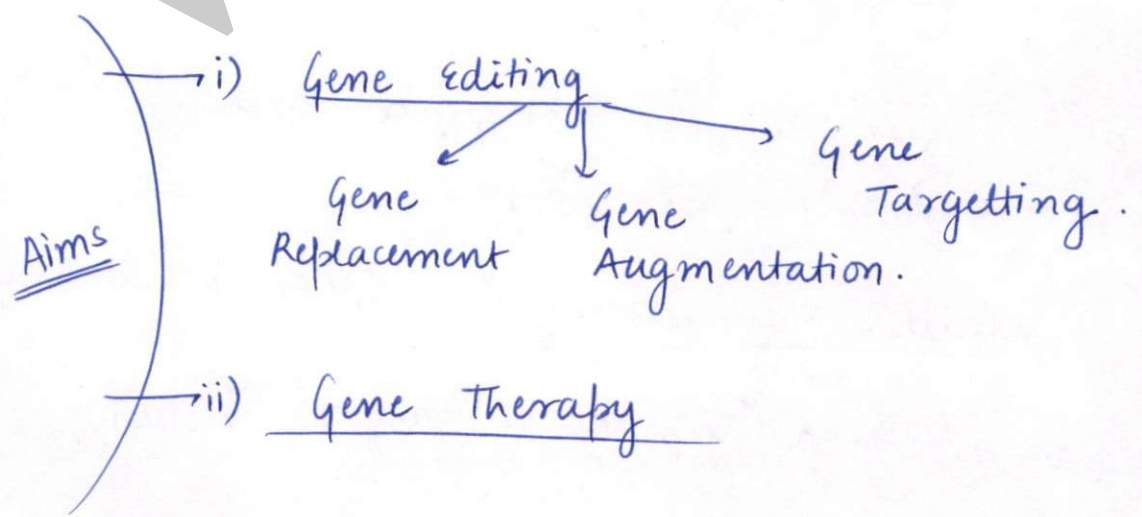 i) Gene Editing
Gene
Replacement
Gene
Augmentation.
Gene
Targetting.
Aims
ii) Gene Therapy